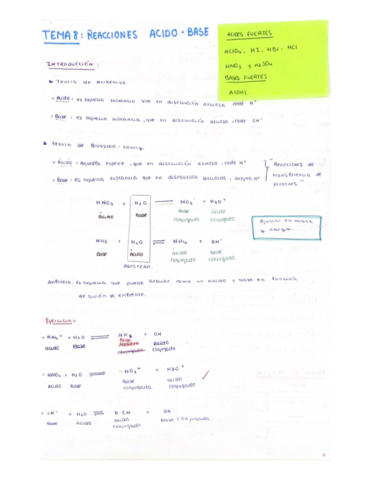 TEMA 8: REACCIONES ACIDO-BASE
ÁCIDOS FUERTES
HClO4, HI, HBr, HCl
HNO3 y H2SO4
BASES FUERTES
INTRODUCCIÓN:
Teoría de Arrhenius
Ácido: es aquella sustancia que en disolución acuosa cede H+
Base: es aquella sustancia, que en disolución acuosa cede OH-
Teoría de Brönsted-Lowry
Ácido: aquella especie, que en disolución acuosa cede H+
"Reacciones de
transferencia de
protones"
Base: es aquella sustancia que en disolución acuosa, acepta H+
HNO3 + H2O NO3- + H3O+
ácido base base conjugada ácido conjugado
Ajustar en masa
y carga
NH3 + H2O NH4+ + OH-
base ácido ácido conjugado base conjugada
ANFÓTERO
Anfótero: es aquella que puede actuar como un ácido y base en función
de quien se enfrente.
Ejercicios:
NH4+ + H2O NH3 + OH
ácido base base ácido conjugado
HNO2 + H2O NO2- + H3O+
ácido base base conjugada ácido conjugado
CN- + H2O HCN + OH
base ácido ácido conjugado base conjugada